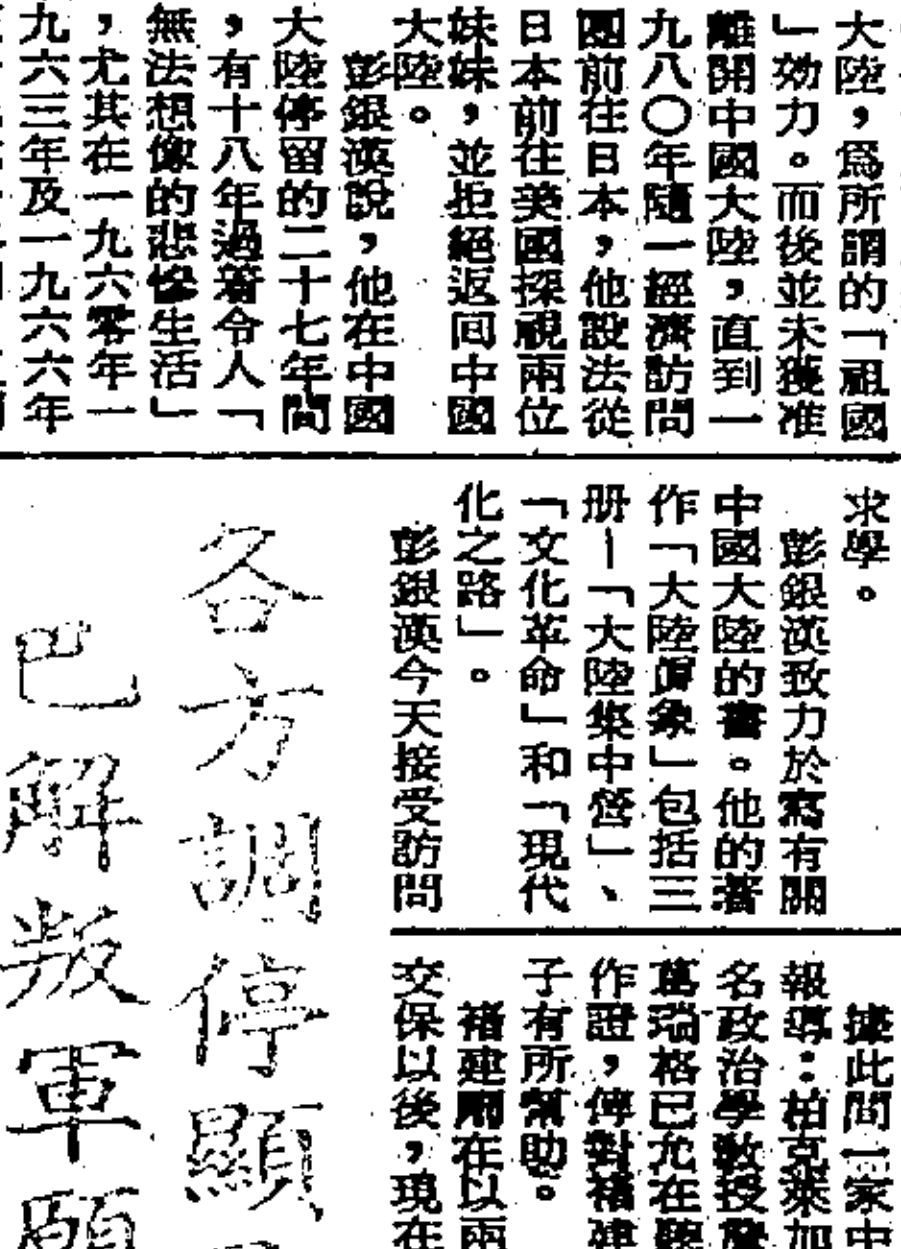 大陸，爲所謂的「祖國
」効力。而後並未獲准
離開中國大陸，直到一
九八〇年隨一經濟訪問
團前往日本，他設法從
日本前往美國探視兩位
妹妹，並拒絕返回中國
大陸。
彭銀漢說，他在中國
大陸停留的二十七年間
，有十八年過着令人「
無法想像的悲慘生活」
，尤其在一九六零年一
九六三年及一九六六年
求學。
彭銀漢致力於寫有關
中國大陸的書。他的著
作「大陸眞象」包括三
册—「大陸集中營」、
「文化革命」和「現代
化之路」。
彭銀漢今天接受訪問
據此間一家中
報導：柏克萊加
名政治學敎授詹
萬瑞格已允在聽
作證，傳對褚建
子有所幫助。
褚建 在以兩
交保以後，現在
各方調停顯
巴解叛軍願